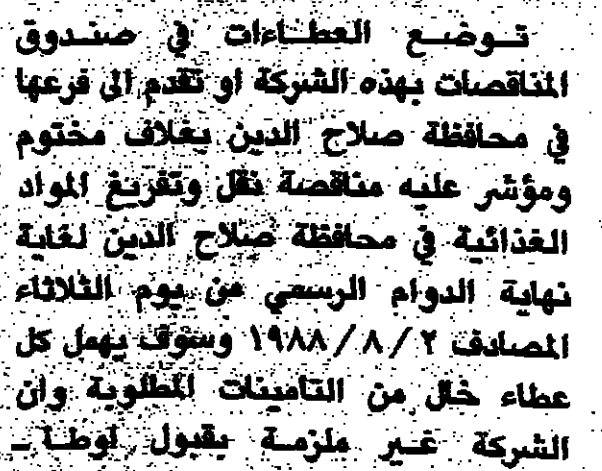 توضع العطاءات في صندوق
المناقصات بهذه الشركة او تقدم الى فرعها
في محافظة صلاح الدين بغلاف مختوم
ومؤشر عليه مناقصة نقل وتفريغ المواد
الغذائية في محافظة صلاح الدين لغاية
نهاية الدوام الرسمي من يوم الثلاثاء
المصادف ٢ / ٨ / ١٩٨٨ وسوف يهمل كل
عطاء خال من التامينات المطلوبة وان
الشركة غير ملزمة بقبول اوطا ـ